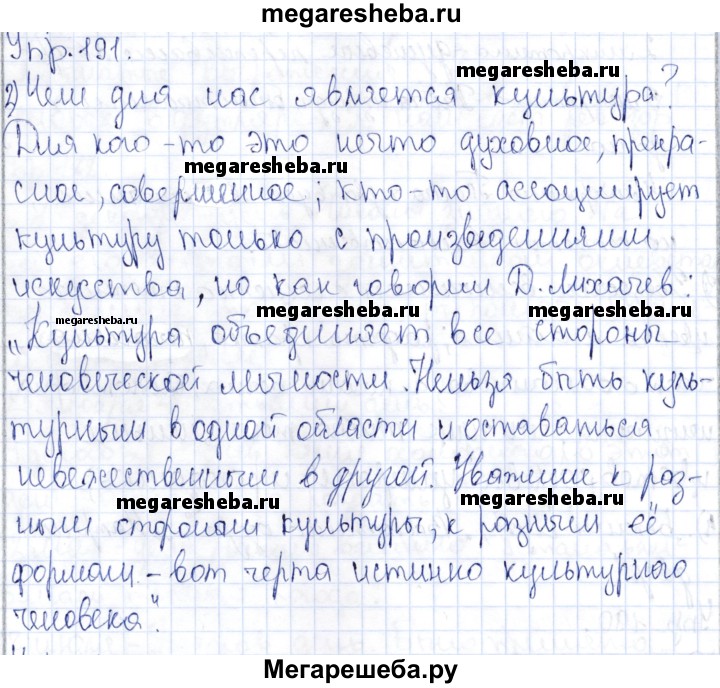 megaresheba.ru
Упр. 191.
megaresheba.ru
2) Чем для нас является культура?
Для кого-то это нечто духовное, прекра-
megaresheba.ru
сное, совершенное; кто-то ассоциирует
культуру только с произведениями
искусства, но как говорил Д. Лихачев:
megaresheba.ru
megaresheba.ru
„Культура объединяет все стороны
человеческой личности. Нельзя быть куль-
турным в одной области и оставаться
невежественным в другой. Уважение к раз-
megaresheba.ru
megaresheba.ru
ным сторонам культуры, к разным её
формам – вот черта истинно культурного
человека".
Мегарешеба.ру